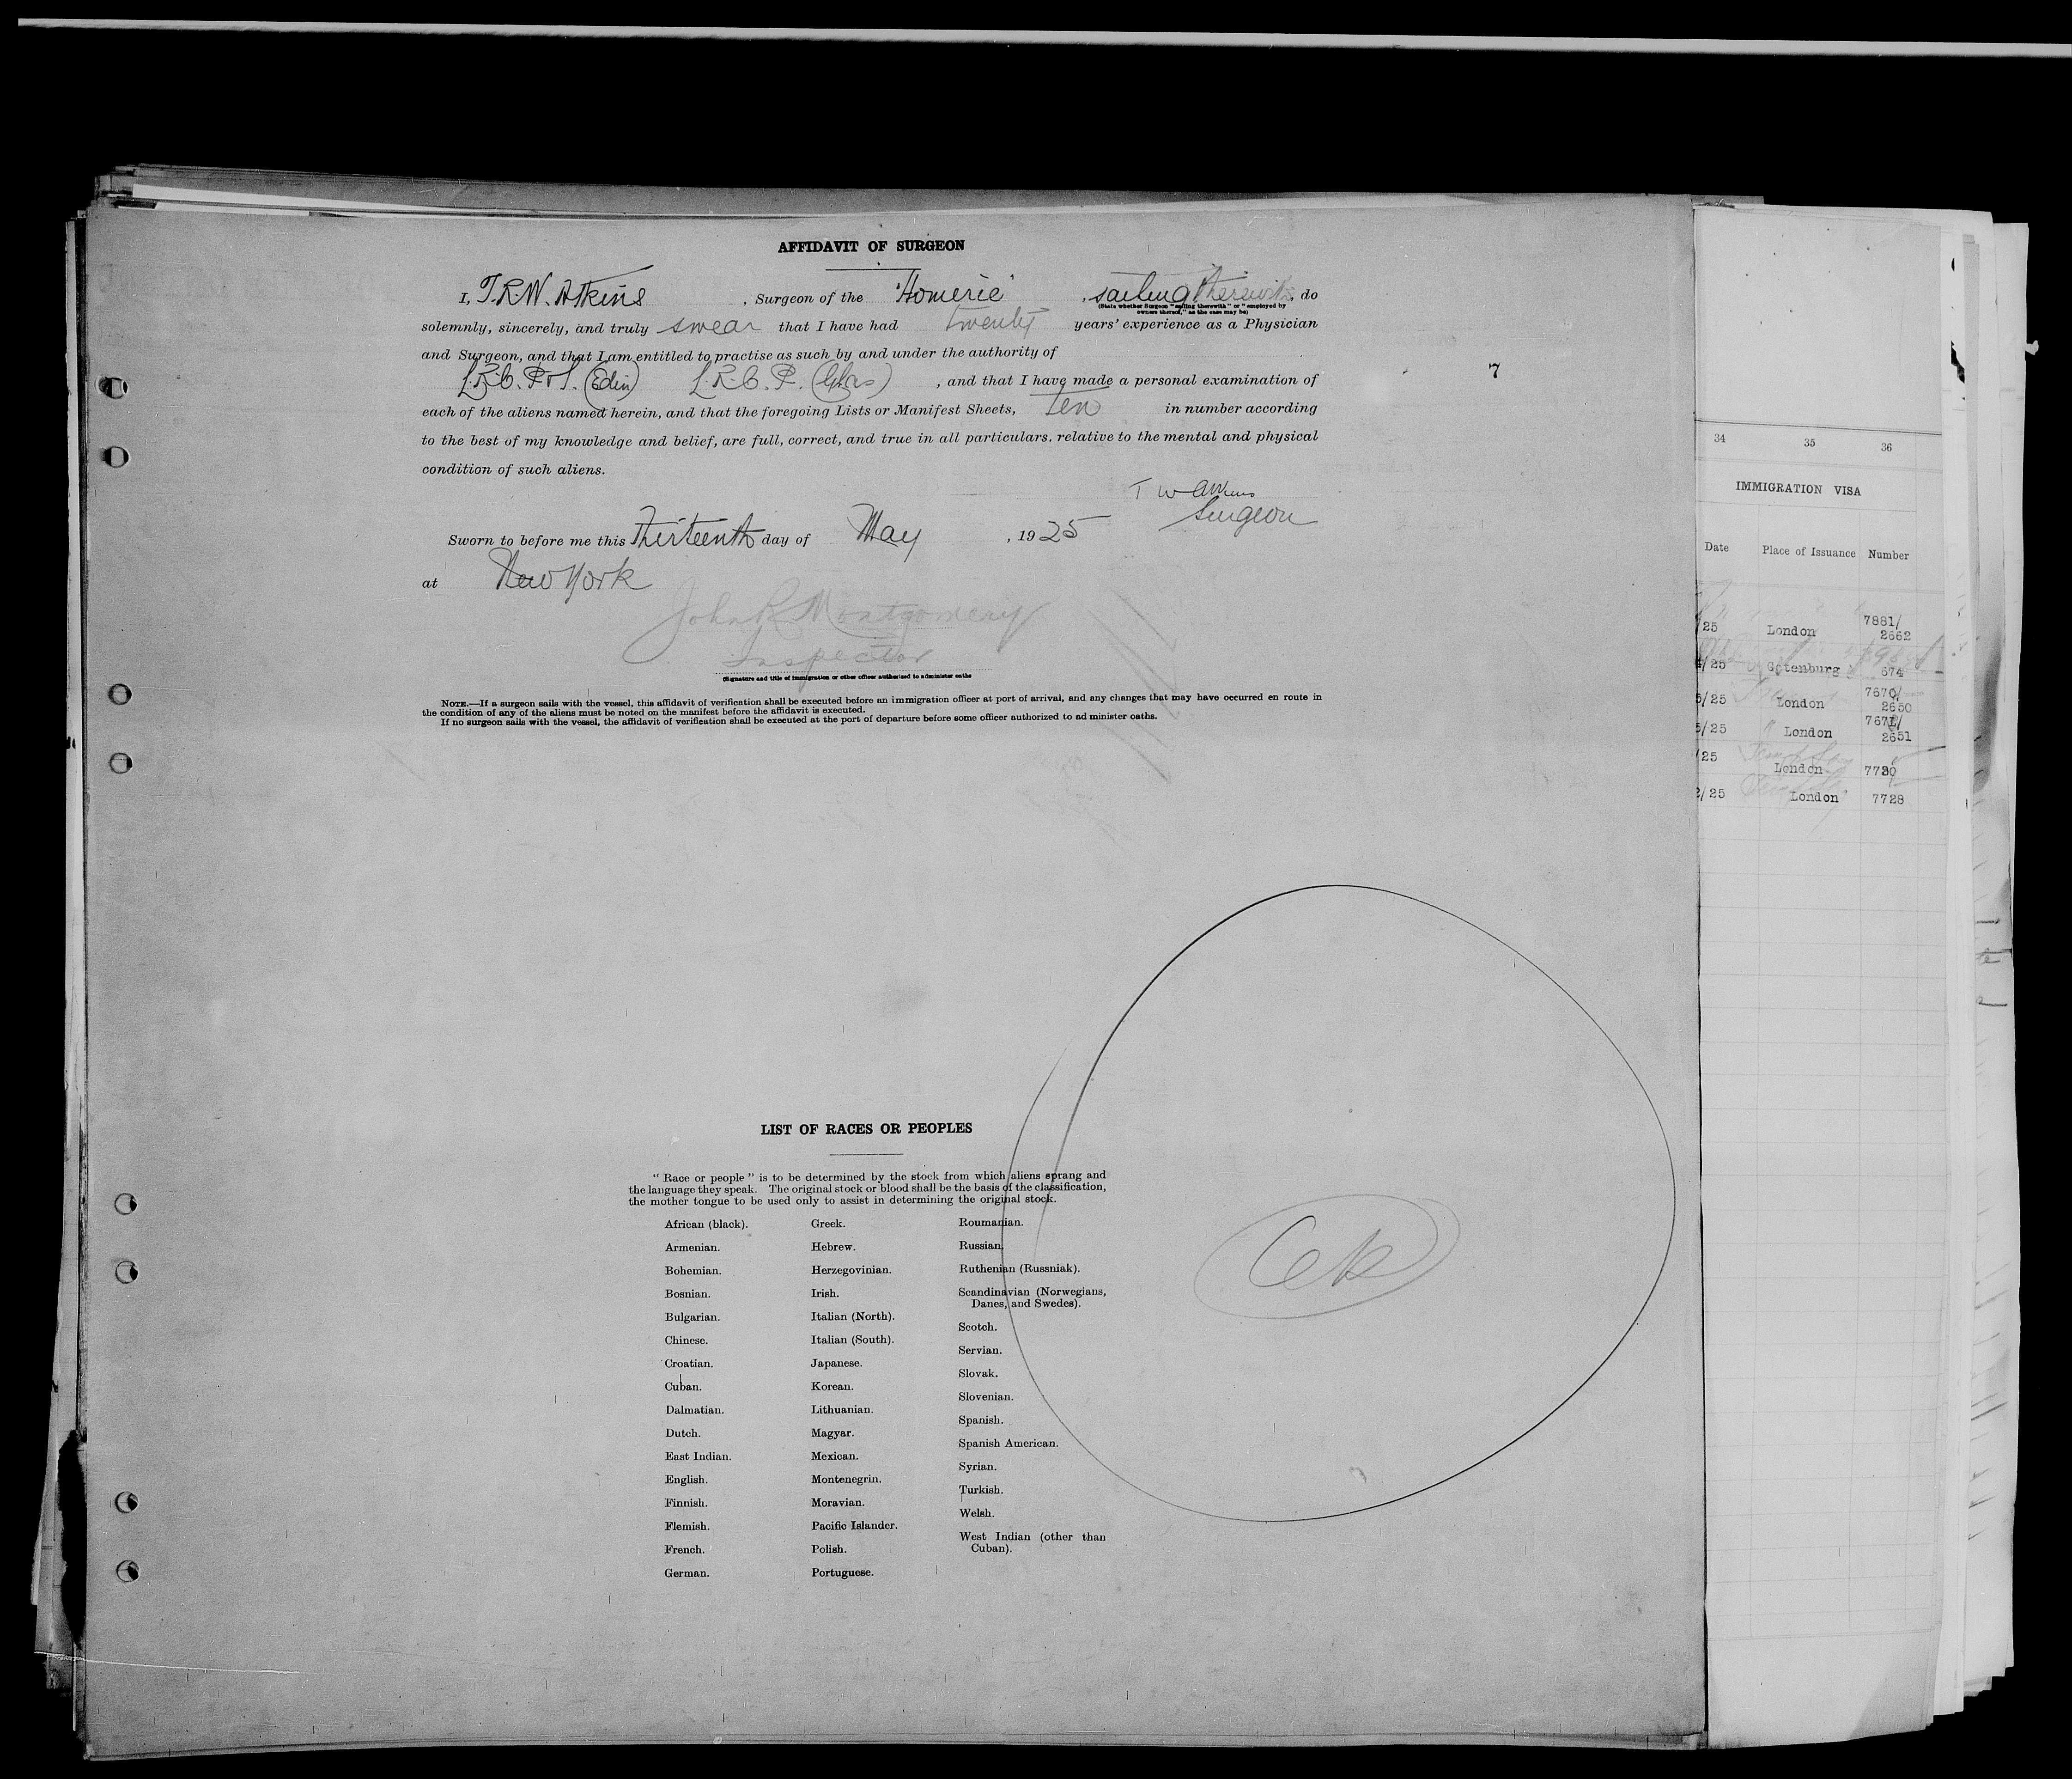 AFFIDAVIT OF SURGEON
I, T.R.W. Atkins , Surgeon of the "Homeric" , sailing therewith, do
(State whether Surgeon "sailing therewith" or "employed by
owners thereof," as the case may be)
solemnly, sincerely, and truly swear that I have had twenty years' experience as a Physician
and Surgeon, and that I am entitled to practise as such by and under the authority of
L.R.C.P. & S. (Edin) (Glas) , and that I have made a personal examination of
7
each of the aliens named herein, and that the foregoing Lists or Manifest Sheets, Ten in number according
to the best of my knowledge and belief, are full, correct, and true in all particulars, relative to the mental and physical
condition of such aliens.
T W Atkins
Surgeon
Sworn to before me this Thirteenth day of May , 1925
at New York
John R Montgomery
Inspector
(Signature and title of immigration or other officer authorized to administer oaths
NOTE.—If a surgeon sails with the vessel, this affidavit of verification shall be executed before an immigration officer at port of arrival, and any changes that may have occurred en route in
the condition of any of the aliens must be noted on the manifest before the affidavit is executed.
If no surgeon sails with the vessel, the affidavit of verification shall be executed at the port of departure before some officer authorized to ad minister oaths.
LIST OF RACES OR PEOPLES
" Race or people " is to be determined by the stock from which aliens sprang and
the language they speak. The original stock or blood shall be the basis of the classification,
the mother tongue to be used only to assist in determining the original stock.
African (black).
Armenian.
Bohemian.
Bosnian.
Bulgarian.
Chinese.
Croatian.
Cuban.
Dalmatian.
Dutch.
East Indian.
English.
Finnish.
Flemish.
French.
German.
Greek.
Hebrew.
Herzegovinian.
Irish.
Italian (North).
Italian (South).
Japanese.
Korean.
Lithuanian.
Magyar.
Mexican.
Montenegrin.
Moravian.
Pacific Islander.
Polish.
Portuguese.
Roumanian.
Russian.
Ruthenian (Russniak).
Scandinavian (Norwegians,
Danes, and Swedes).
Scotch.
Servian.
Slovak.
Slovenian.
Spanish.
Spanish American.
Syrian.
Turkish.
Welsh.
West Indian (other than
Cuban).
Ok
34 35 36
IMMIGRATION VISA
Date Place of Issuance Number
/25 London 7881/
2662
/25 Gotenburg 674
5/25 London 7670/
2650
5/25 " London 7671/
2651
/25 London 7730
2/25 London 7728